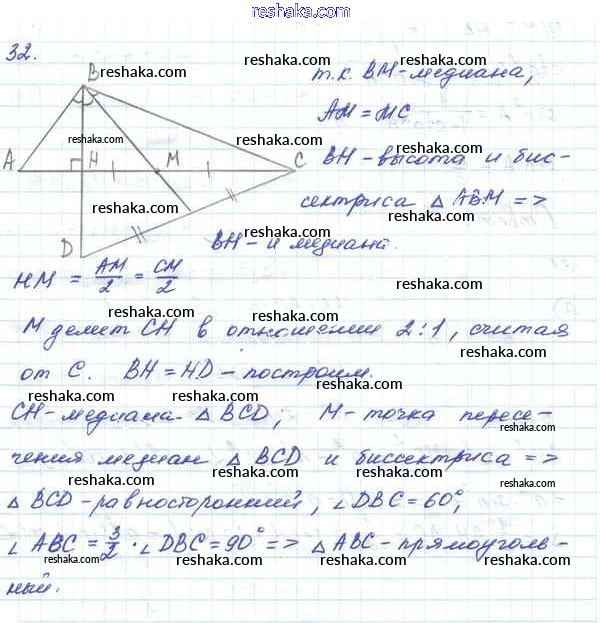 reshaka.com
32.
B
reshaka.com
т.к. BM-медиана,
reshaka.com
AM = MC
reshaka.com
reshaka.com
A
H
M
C
BH-высота и бис-
reshaka.com
reshaka.com
сектриса △ ABM =>
reshaka.com
D
BH- и медиана.
reshaka.com
HM = AM/2 = CM/2
reshaka.com
reshaka.com
M делит CH в отношении 2:1, считая
reshaka.com
reshaka.com
от C. BH = HD - построим.
reshaka.com
reshaka.com
CH-медиана △ BCD; M-точка пересе-
reshaka.com
reshaka.com
чения медиан △ BCD и биссектриса =>
reshaka.com
reshaka.com
△ BCD-равносторонний, ∠DBC = 60°,
reshaka.com
reshaka.com
∠ ABC = 3/2 · ∠DBC = 90° => △ ABC-прямоуголь-
reshaka.com
reshaka.com
ный.